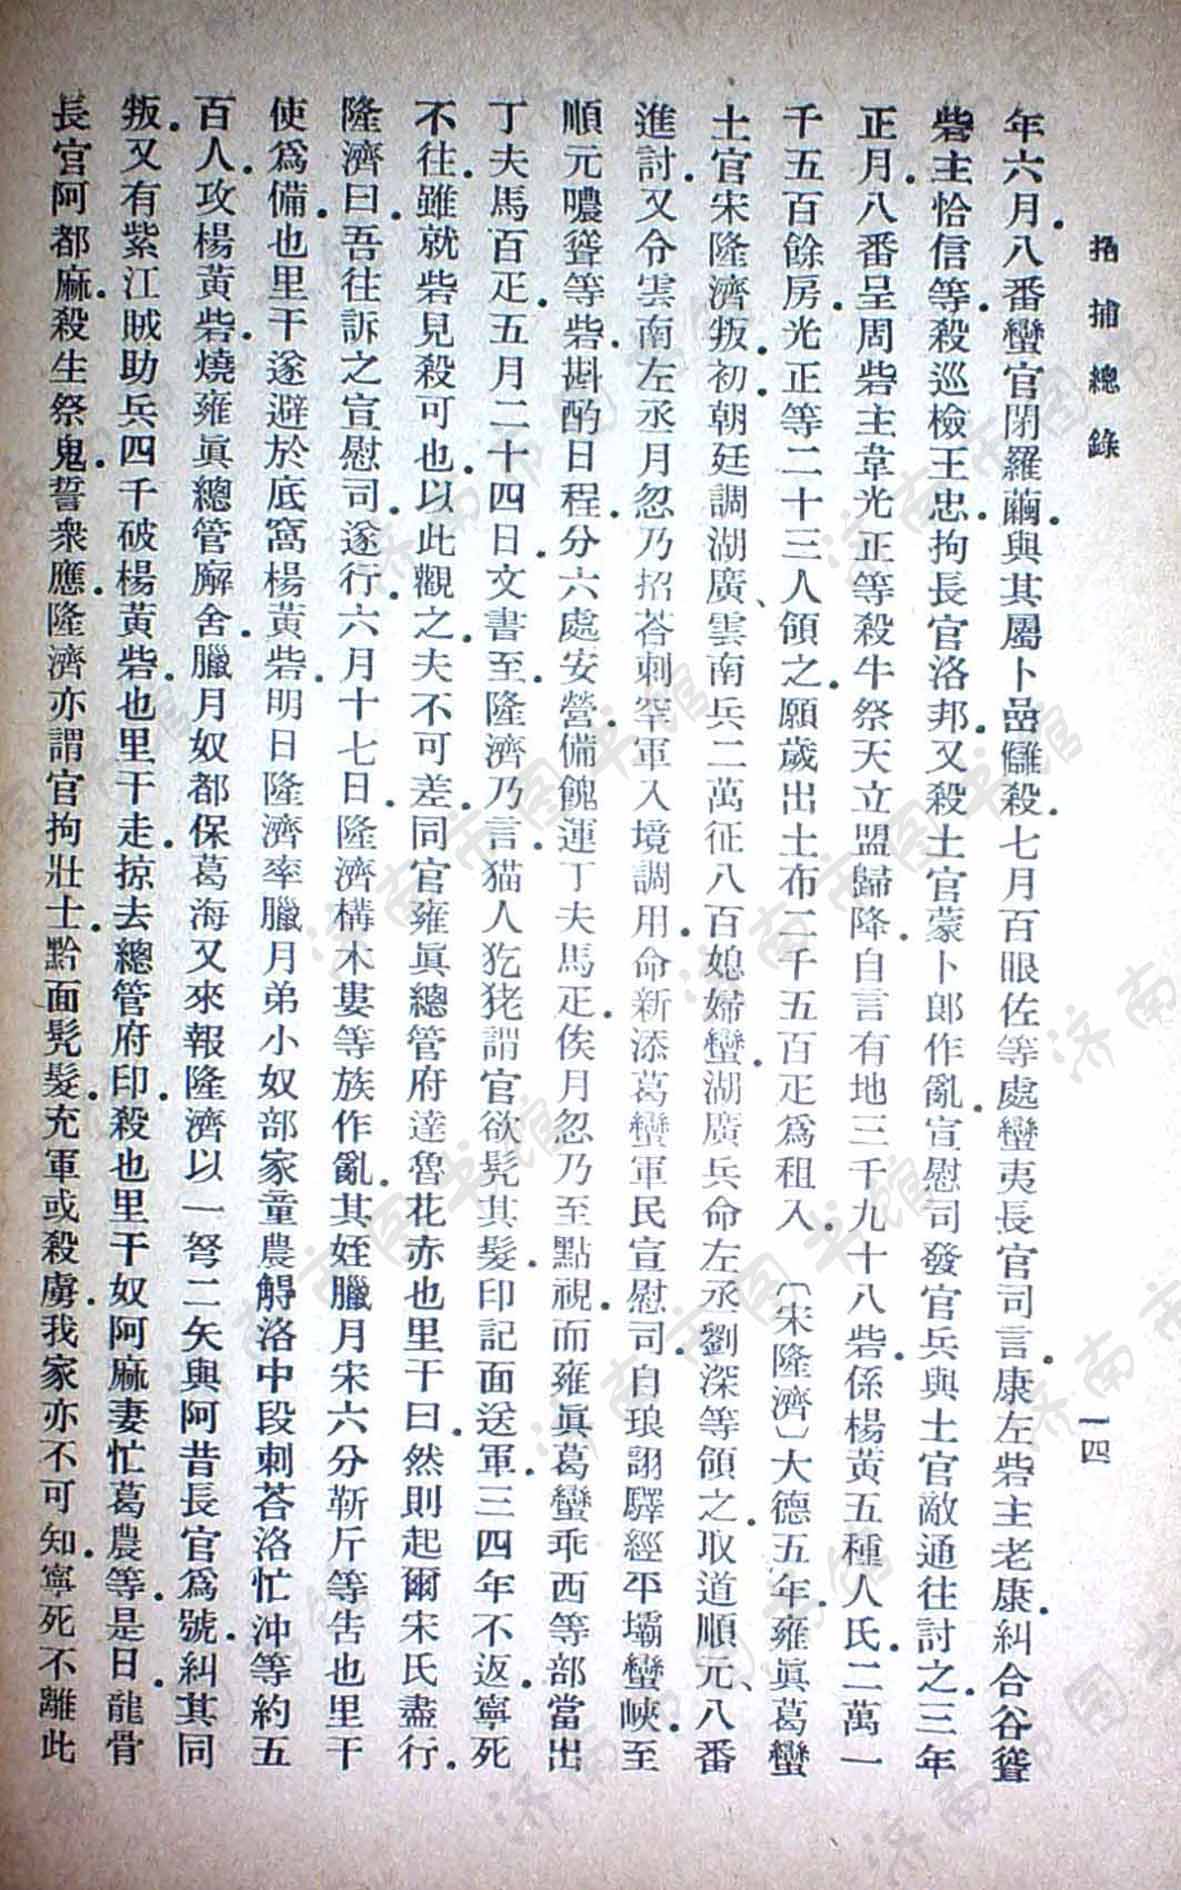 招捕總錄
一四
年六月．八番蠻官閉羅繭．與其屬卜嵒讎殺．七月百眼佐等處蠻夷長官司言．康左砦主老康．糾合谷聳
砦主恰信等．殺巡檢王忠．拘長官洛邦．又殺土官蒙卜郎作亂．宣慰司發官兵與土官敵通往討之．三年
正月．八番呈周砦主韋光正等殺牛祭天立盟歸降．自言有地三千九十八砦．係楊黃五種人氏．二萬一
千五百餘房．光正等二十三人領之．願歲出土布二千五百疋爲租入．〔宋隆濟〕大德五年．雍眞葛蠻
土官宋隆濟叛．初．朝廷調湖廣、雲南兵二萬征八百媳婦蠻．湖廣兵命左丞劉深等領之．取道順元、八番
進討．又令雲南左丞月忽乃招荅剌罕軍入境調用．命新添葛蠻軍民宣慰司．自琅詡驛經平壩蠻峽．至
順元噥聳等砦．斟酌日程．分六處安營．備餽運丁夫馬疋．俟月忽乃至點視．而雍眞葛蠻乖西等部當出
丁夫馬百疋．五月二十四日．文書至．隆濟乃言．猫人犵狫謂官欲髡其髮．印記面送軍．三四年不返．寧死
不往．雖就砦見殺可也．以此觀之．夫不可差．同官雍眞總管府達魯花赤也里干曰．然則起爾宋氏盡行．
隆濟曰．吾往訴之宣慰司．遂行．六月十七日．隆濟構木婁等族作亂．其姪臘月宋六分靳斤等告也里干
使爲備．也里干遂避於底窩楊黃砦．明日隆濟率臘月弟小奴部家童農觮洛中段刺荅洛忙沖等約五
百人．攻楊黃砦．燒雍眞總管廨舍．臘月奴都保葛海又來報隆濟以一弩二矢與阿昔長官爲號．糾其同
叛．又有紫江賊助兵四千破楊黃砦．也里干走．掠去總管府印．殺也里干奴阿麻妻忙葛農等．是日．龍骨
長官阿都麻．殺生祭鬼．誓衆應．隆濟亦謂官拘壯士．黔面髡髮．充軍或殺虜．我家亦不可知．寧死不離此